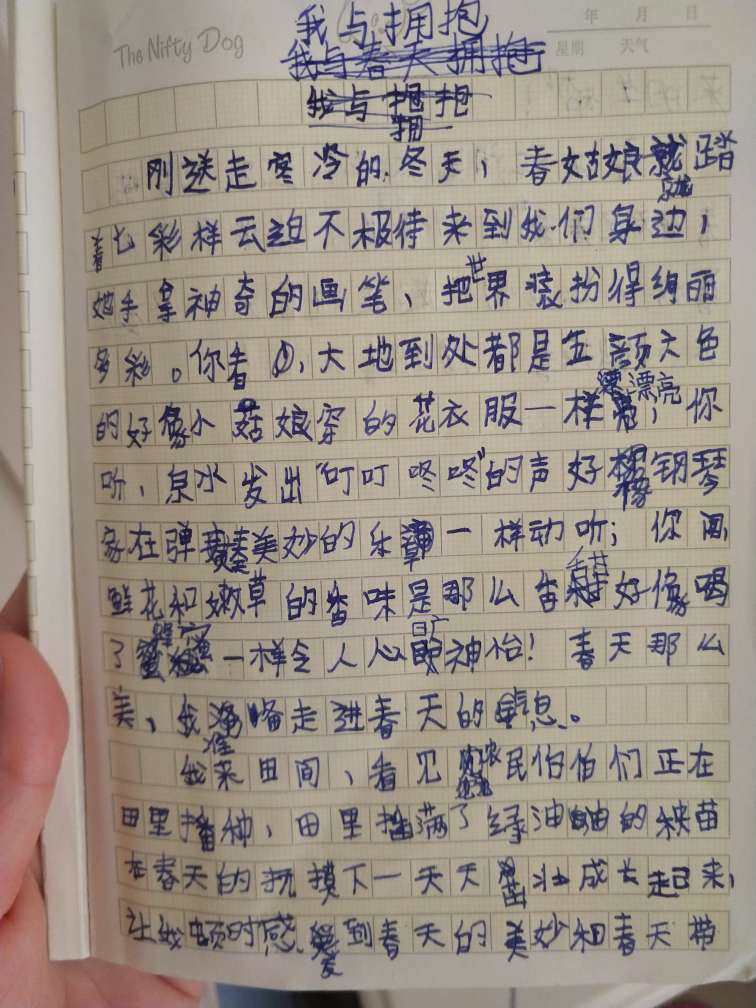 我与拥抱
The Nifty Dog
年 月 日
我与春天拥抱
星期 天气
我与拥抱
刚送走寒冷的冬天，春姑娘就踏
着七彩样云迫不极待来到我们身边，
她手拿神奇的画笔、把世界装扮得绚丽
多彩。你看，大地到处都是五颜六色
的好像小姑娘穿的花衣服一样漂亮；你
听，泉水发出“叮叮咚咚”的声好像钢琴
家在弹奏美妙的乐章一样动听；你闻，
鲜花和嫩草的香味是那么香甜好像喝
了蜂蜜一样令人心旷神怡！春天那么
美，我准备走进春天的信息。
我来田间，看见农民伯伯们正在
田里播种，田里插满了绿油油的秧苗
在春天的抚摸下一天天茁壮成长起来，
让我顿时感受到春天的美妙和春天带